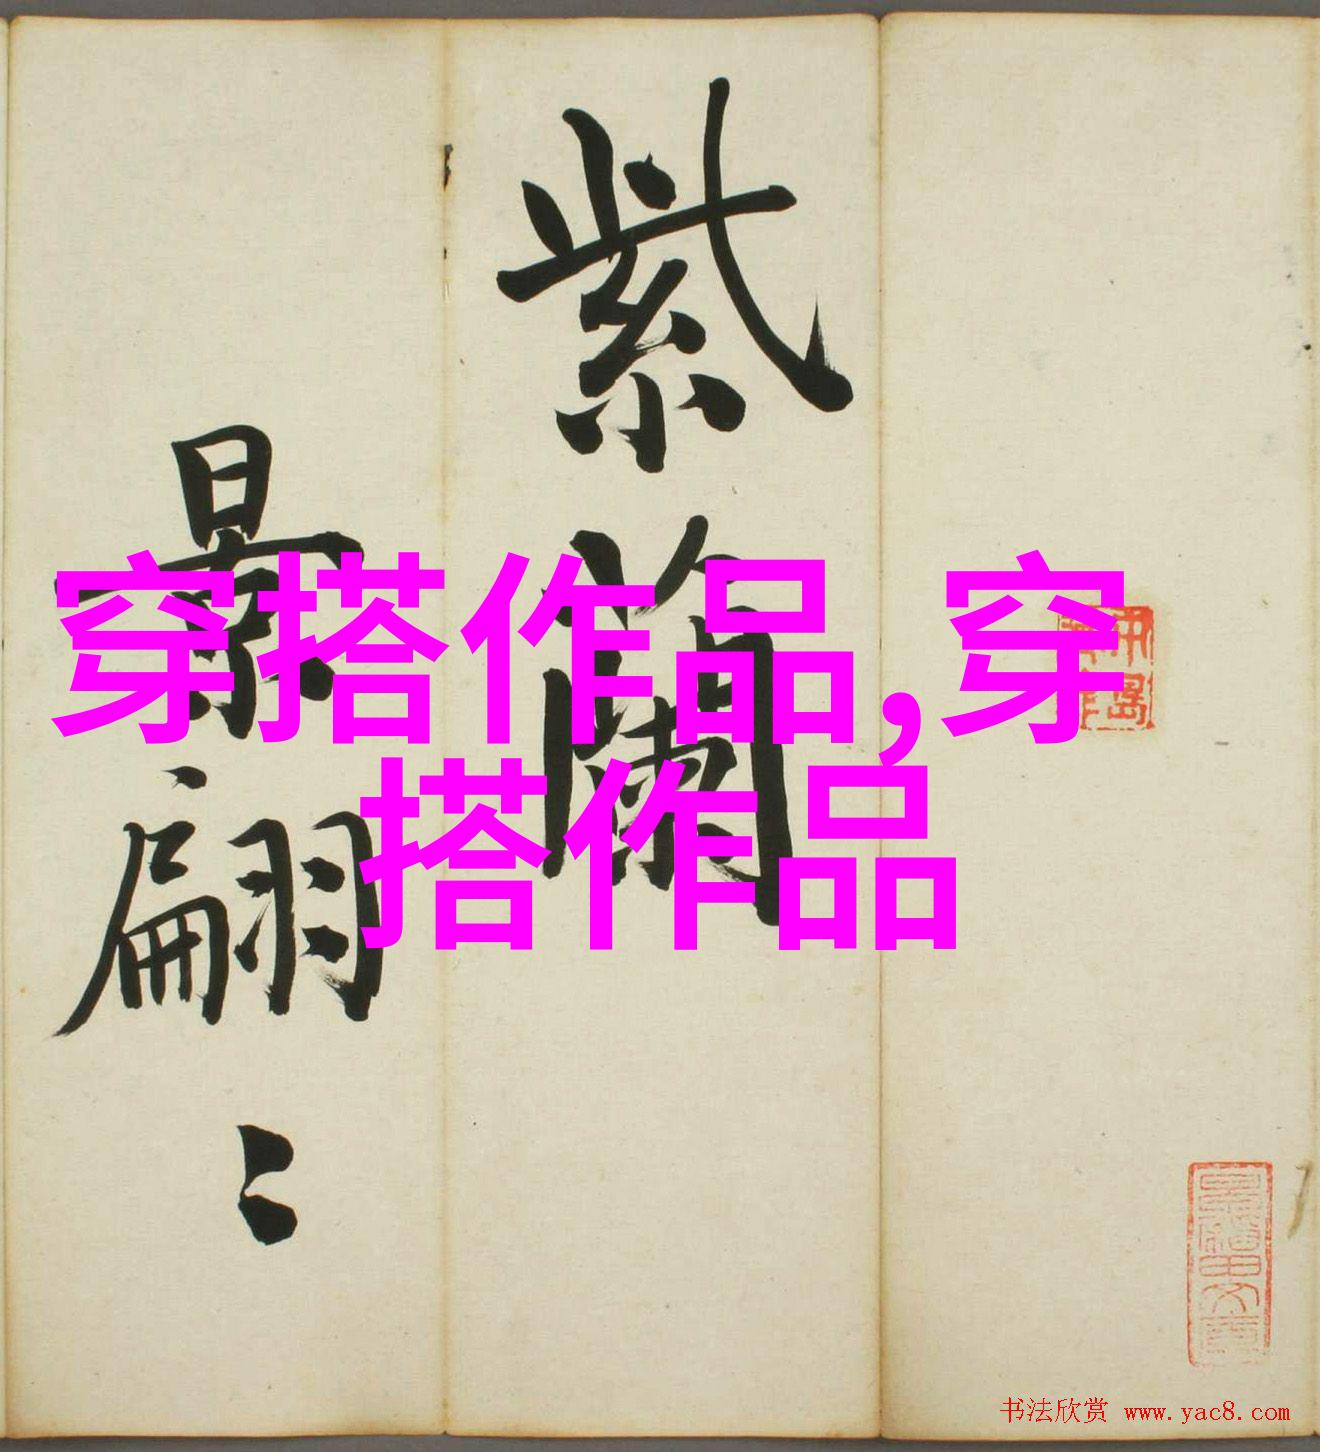 紫蘭
景翩〻
穿搭作品,穿
搭作品
书法欣赏 www.yac8.com